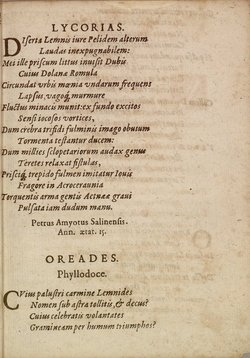 LYCORIAS.
DIserta Lemnis iure Pelidem alterum
Laudas inexpugnabilem:
Mei ille priscum littus inuisit Dubis
Cuius Dolana Romula
Circundat vrbis mœnia vndarum frequens
Lapsus, vagoq́; murmure
Fluctus minacis munit: ex fundo excitos
Sensi iocosos vortices,
Dum crebra trisidi fulminis imago obutum
Tormenta testantur ducem:
Dum milles sclopetariorum audax genus
Teretes relaxat fistulas,
Priscíq́, trepido fulmen imitatur Iouis
Fragore in Acroceraunia
Torquentis arma gentis Aetneæ graui
Pulsata iam dudum manu.
Petrus Amyotus Salinensis.
Ann. ætat. 15.
OREADES.
Phyllodoce.
CVius palustri carmine Lemnides
Nomen sub astra tollitis, & decus?
Cuius celebratis volantates
Gramineam per humum triumphos?